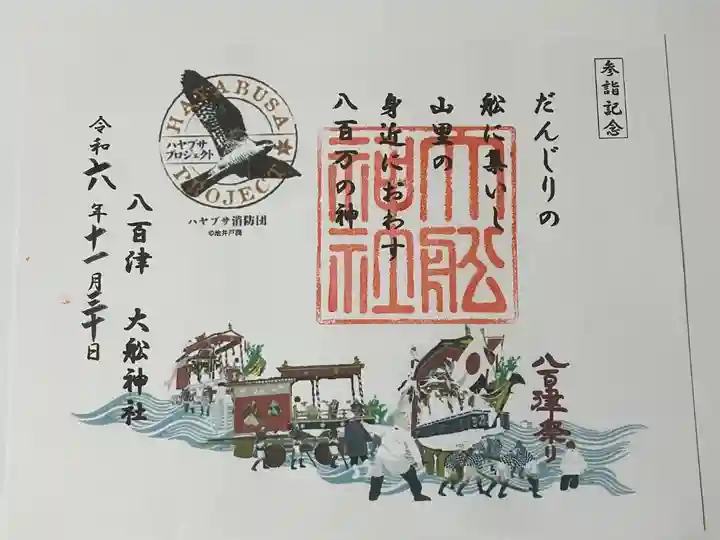 参詣記念
だんじりの
舩に集いし
山里の
身近におわす
八百万の神
大舩
神社
HAYABUSA
ハヤブサ
プロジェクト
PROJECT
ハヤブサ消防団
©池井戸潤
八百津 大舩神社
令和六年十一月三十日
八百津祭り